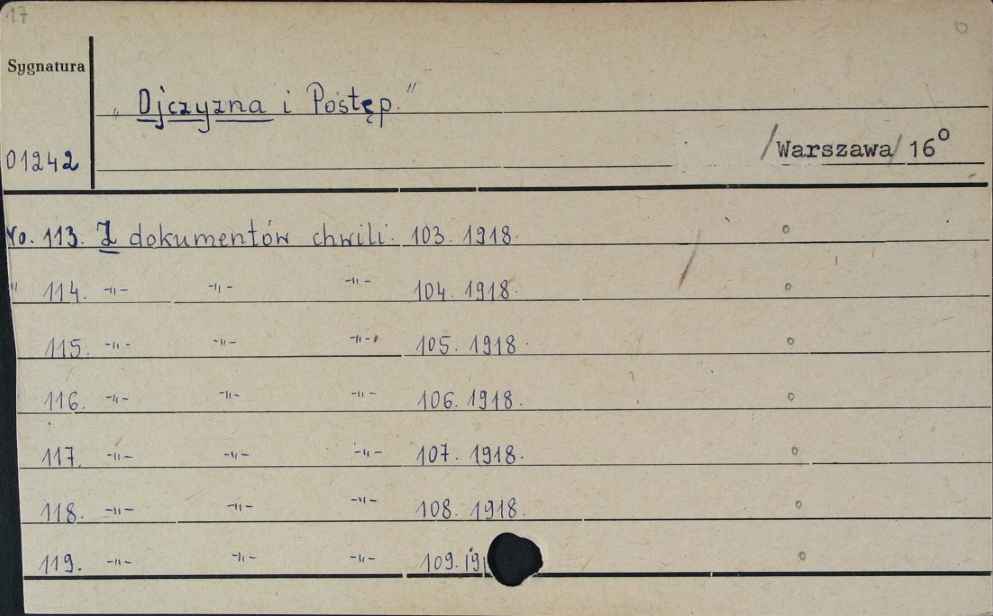 17
Sygnatura
„Ojczyzna i Postęp."
01242
/Warszawa/ 16°
No. 113. Z dokumentów chwili. 103. 1918.
" 114. -"- -"- -"- 104. 1918.
115. -"- -"- -"- 105. 1918.
116. -"- -"- -"- 106. 1918.
117. -"- -"- -"- 107. 1918.
118. -"- -"- -"- 108. 1918.
119. -"- -"- -"- 109. 19